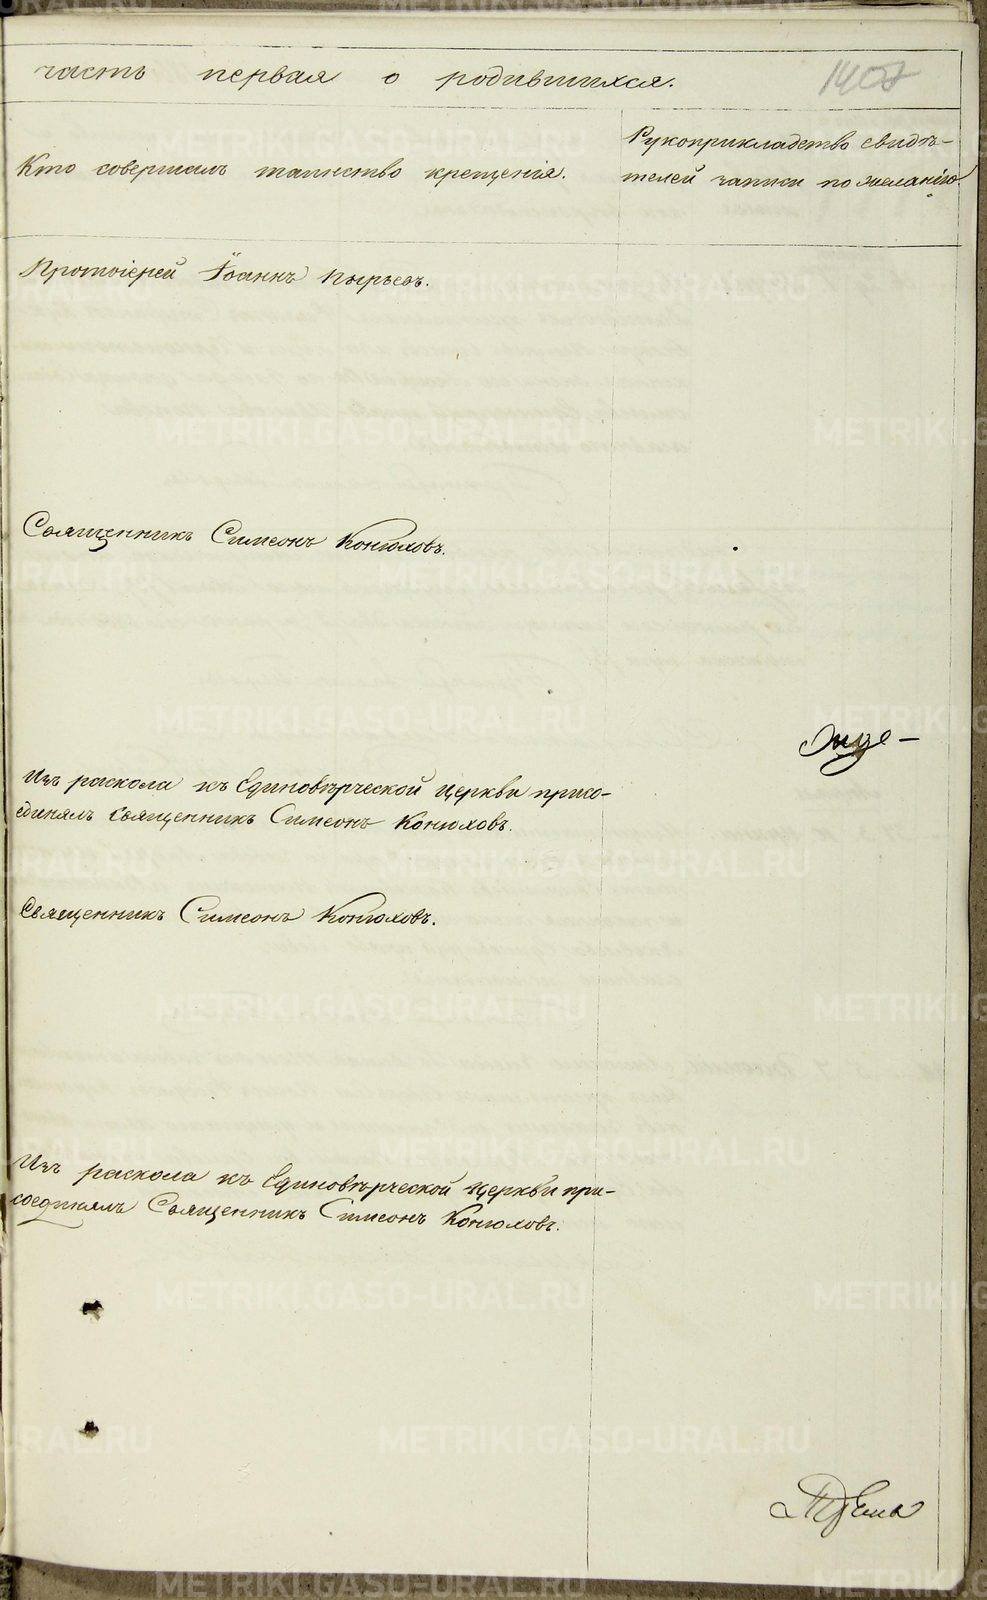 часть первая о родившихся.
1407
Кто совершалъ таинство крещенія.
Рукоприкладство свидѣ-
телей записи по желанію.
Протоіерей Іоаннъ Пырьевъ.
Священникъ Симеонъ Конюховъ.
Изъ раскола къ Единовѣрческой церкви присо-
единялъ священникъ Симеонъ Конюховъ.
Священникъ Симеонъ Конюховъ.
Изъ раскола къ Единовѣрческой церкви при-
соединялъ Священникъ Симеонъ Конюховъ.
METRIKI.GASO-URAL.RU